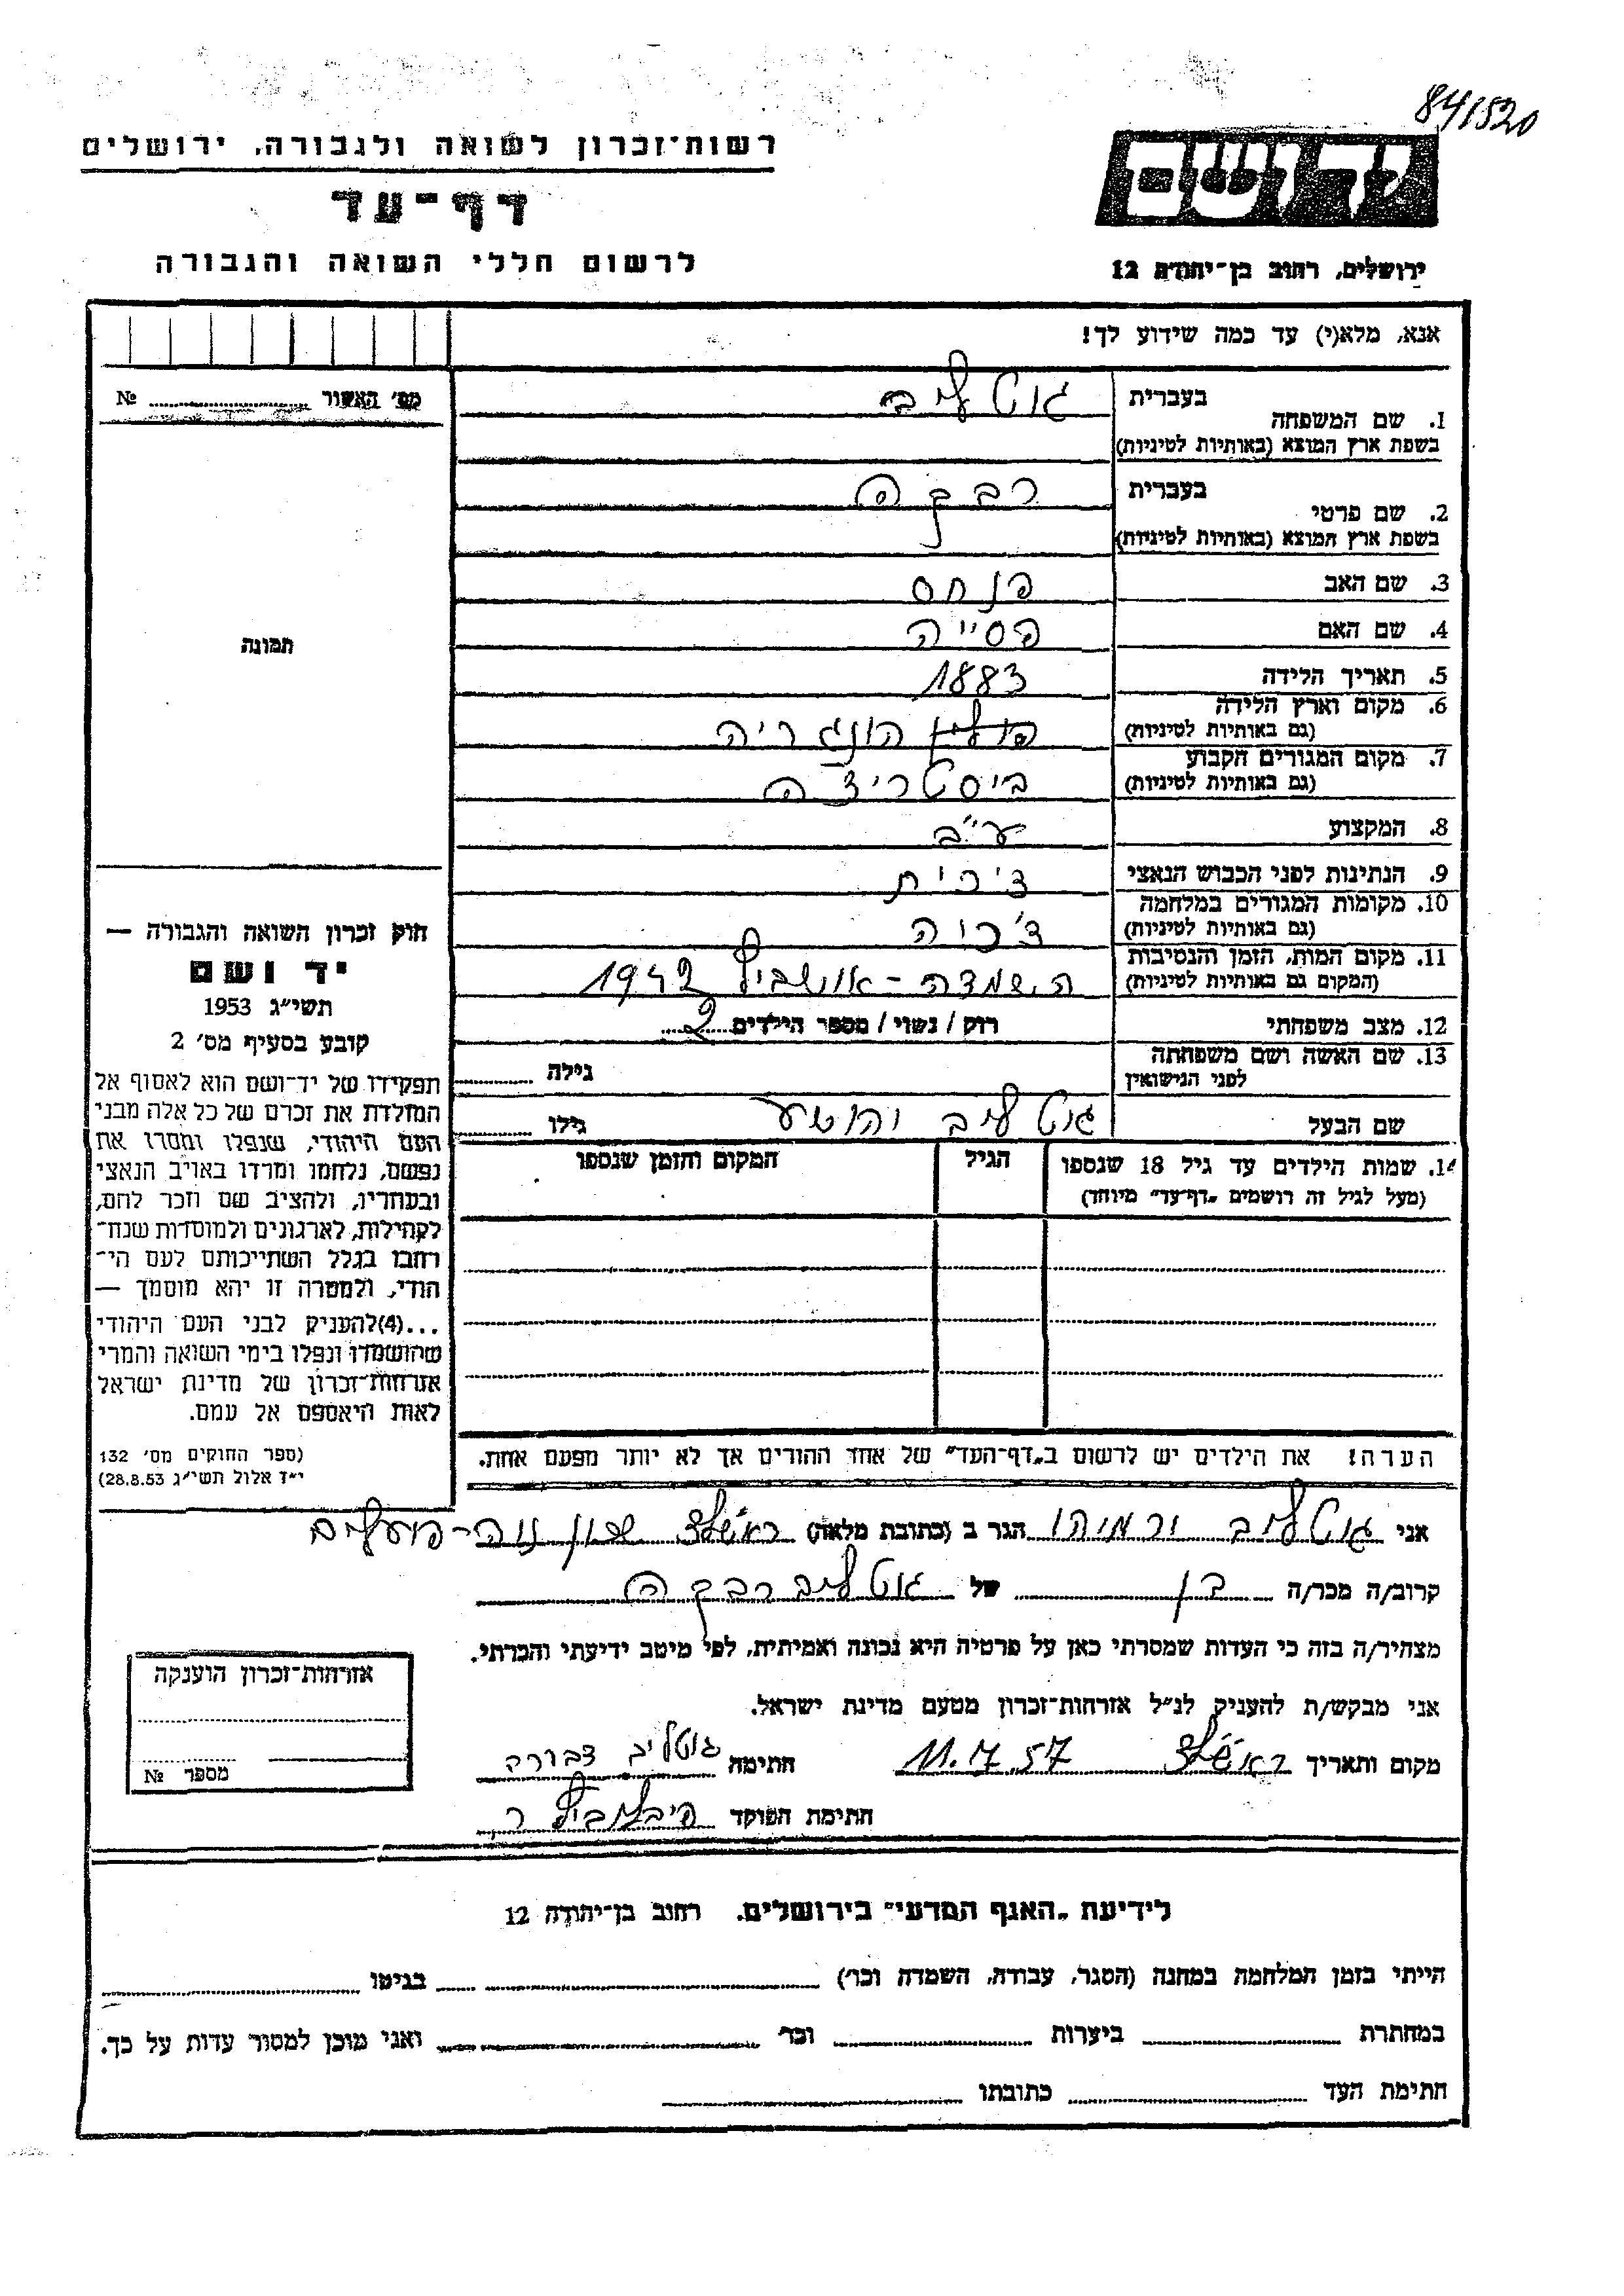 84/1520
רשות־זכרון לשואה ולגבורה, ירושלים
יד ושם
דף־עד
לרשום חללי השואה והגבורה
ירושלים, רחוב בן־יהודה 12
אנא, מלא(י) עד כמה שידוע לך!
מס׳ האשור № 
1. שם המשפחה בעברית גוטליב
בשפת ארץ המוצא (באותיות לטיניות)
2. שם פרטי בעברית רבקה
בשפת ארץ המוצא (באותיות לטיניות)
3. שם האב פנחס
4. שם האם פסייה
5. תאריך הלידה 1883
6. מקום וארץ הלידה פולין הונגריה
(גם באותיות לטיניות)
7. מקום המגורים הקבוע ביסטריצה
(גם באותיות לטיניות)
8. המקצוע עי״ב
9. הנתינות לפני הכבוש הנאצי צ׳כית
10. מקומות המגורים במלחמה צ׳כיה
(גם באותיות לטיניות)
11. מקום המות, הזמן והנסיבות השמדה - אושביץ 1942
(המקום גם באותיות לטיניות)
12. מצב משפחתי רוק / נשוי / מספר הילדים 2
13. שם האשה ושם משפחתה גילה
לפני הנישואין
שם הבעל גוטליב יהושע גילו
14. שמות הילדים עד גיל 18 שנספו הגיל המקום והזמן שנספו
(מעל לגיל זה רושמים „דף־עד״ מיוחד)
הערה! את הילדים יש לרשום ב„דף־העד״ של אחד ההורים אך לא יותר מפעם אחת.
תמונה
חוק זכרון השואה והגבורה —
יד ושם
תשי״ג 1953
קובע בסעיף מס׳ 2
תפקידו של יד־ושם הוא לאסוף אל
המולדת את זכרם של כל אלה מבני
העם היהודי, שנפלו ומסרו את
נפשם, נלחמו ומרדו באויב הנאצי
ובעוזריו, ולהציב שם וזכר להם,
לקהילות, לארגונים ולמוסדות שנח־
רבו בגלל השתייכותם לעם הי־
הודי, ולמטרה זו יהא מוסמך —
...(4)להעניק לבני העם היהודי
שהושמדו ונפלו בימי השואה והמרי
אזרחות־זכרון של מדינת ישראל
לאות היאספם אל עמם.
(ספר החוקים מס׳ 132
י״ז אלול תשי״ג 28.8.53)
אני גוטליב ירמיהו הגר ב (כתובת מלאה) ראשל״צ שכון נוה-פועלים
קרוב/ה מכר/ה בן של גוטליב רבקה
מצהיר/ה בזה כי העדות שמסרתי כאן על פרטיה היא נכונה ואמיתית, לפי מיטב ידיעתי והכרתי.
אני מבקש/ת להעניק לנ״ל אזרחות־זכרון מטעם מדינת ישראל.
מקום ותאריך ראשל״צ 11.7.57 חתימה גוטליב דבורה
חתימת הפוקד
אזרחות־זכרון הוענקה
מספר №
לידיעת „האגף המדעי״ בירושלים, רחוב בן־יהודה 12
הייתי בזמן המלחמה במחנה (הסגר, עבודה, השמדה וכו׳) בגיטו
במחתרת ביערות וכו׳ ואני מוכן למסור עדות על כך.
חתימת העד כתובתו